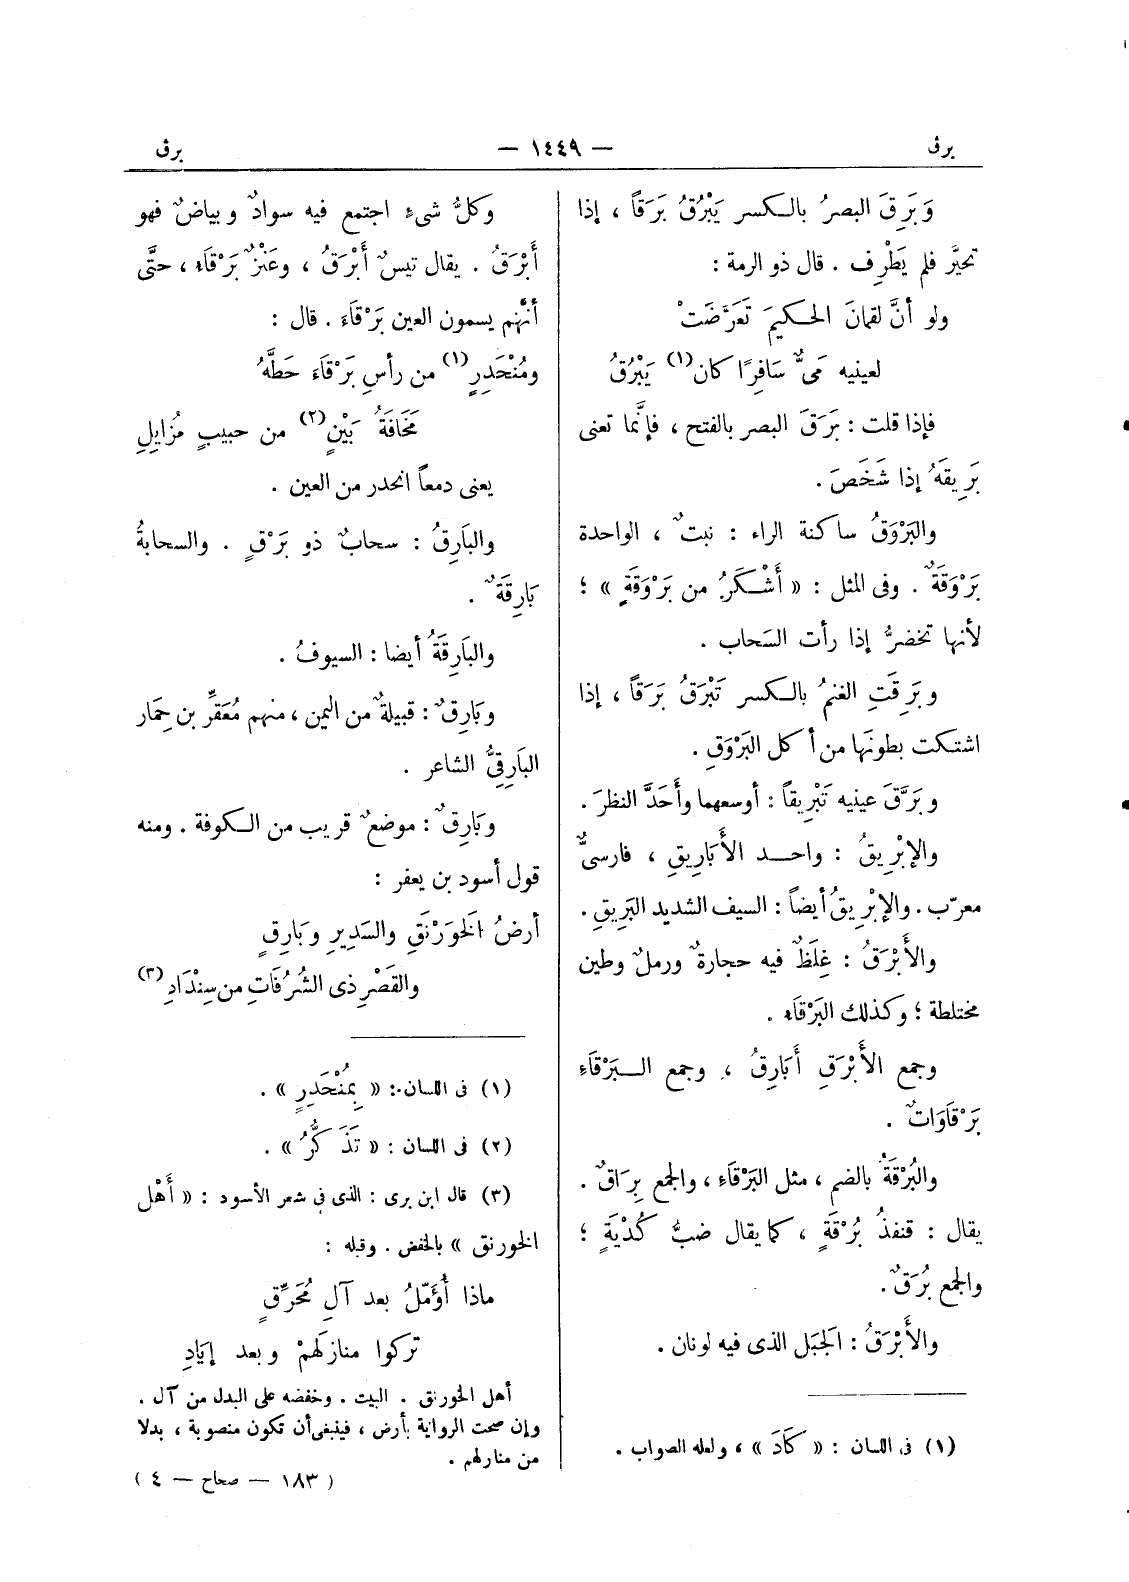 برق — ١٤٤٩ — برق
وَبَرِقَ البصرُ بالكسر يَبْرُقُ بَرَقاً ، إذا
تحيَّر فلم يَطْرِف . قال ذو الرمة :
ولو أنَّ لقمانَ الحكيمَ تَعَرَّضَتْ
لعينيه مَىٌّ سَافِرًا كان(١) يَبْرُقُ
فإذا قلت : بَرَقَ البصر بالفتح ، فإنَّما تعنى
بَرِيقَهُ إذا شَخَصَ .
والبَرْوَقُ ساكنة الراء : نبتٌ ، الواحدة
بَرْوَقَةٌ . وفى المثل : « أَشْكَرُ من بَرْوَقَةٍ » ؛
لأنها تخضرُّ إذا رأت السَحاب .
وبَرِقَتِ الغنمُ بالكسر تَبْرَقُ بَرَقاً ، إذا
اشتكت بطونَها من أكل البَرْوَقِ .
وبَرَّقَ عينيه تَبْرِيقاً : أوسعهما وأَحَدَّ النظرَ .
والإبْرِيقُ : واحد الأَبَارِيقِ ، فارسىٌّ
معرّب . والإبْرِيقُ أيضاً : السيف الشديد البَرِيقِ .
والأَبْرَقُ : غِلَظٌ فيه حجارةٌ ورملٌ وطين
مختلطة ؛ وكذلك البَرْقَاء .
وجمع الأَبْرَقِ أَبَارِقُ ، وجمع البَرْقَاءِ
بَرْقَاوَاتٌ .
والبُرْقَةُ بالضم ، مثل البَرْقَاءِ ، والجمع بِرَاقٌ .
يقال : قنفذُ بُرْقَةٍ ، كما يقال ضبُّ كُدْيَةٍ ؛
والجمع بُرَقٌ .
والأَبْرَقُ : الجَبَل الذى فيه لونان .
(١) فى اللسان : « كَادَ » ، ولعله الصواب .
وكلُّ شىءٍ اجتمع فيه سوادٌ وبياضٌ فهو
أَبْرَقُ . يقال تيسٌ أَبْرَقُ ، وعَنْزٌ بَرْقَاء ، حتَّى
أنَّهم يسمون العين بَرْقَاءَ . قال :
ومُنْحَدِرٍ(١) من رأسِ بَرْقَاءَ حَطَّهُ
مَخَافَةُ بَيْنٍ(٢) من حبيبٍ مُزَايِلِ
يعنى دمعاً انحدر من العين .
والبَارِقُ : سحابٌ ذو بَرْقٍ . والسحابةُ
بَارِقَةٌ .
والبَارِقَةُ أيضا : السيوفُ .
وبَارِقٌ : قبيلةٌ من اليمن ، منهم مُعَقِّرُ بن حِمَار
البَارِقِيُّ الشاعر .
وبَارِقٌ : موضعٌ قريب من الكوفة . ومنه
قول أسود بن يعفر :
أرضُ الخَوَرْنَقِ والسَدِيرِ وبَارِقٍ
والقَصْرِ ذى الشُرُفَاتِ من سِنْدَادِ (٣)
(١) فى اللسان : « بِمُنْحَدِرٍ » .
(٢) فى اللسان : « تَذَكُّرُ » .
(٣) قال ابن برى : الذى فى شعر الأسود : « أَهْل
الخورنق » بالخفض . وقبله :
ماذا أُؤَمِّلُ بعد آلِ مُحَرِّقٍ
تركوا منازلَهمْ وبعد إيَادِ
أهل الخورنق . البيت . وخفضه على البدل من آل .
وإن صحت الرواية بأرض ، فينبغى أن تكون منصوبة ، بدلا
من منازلهم .
( ١٨٣ — صحاح — ٤ )